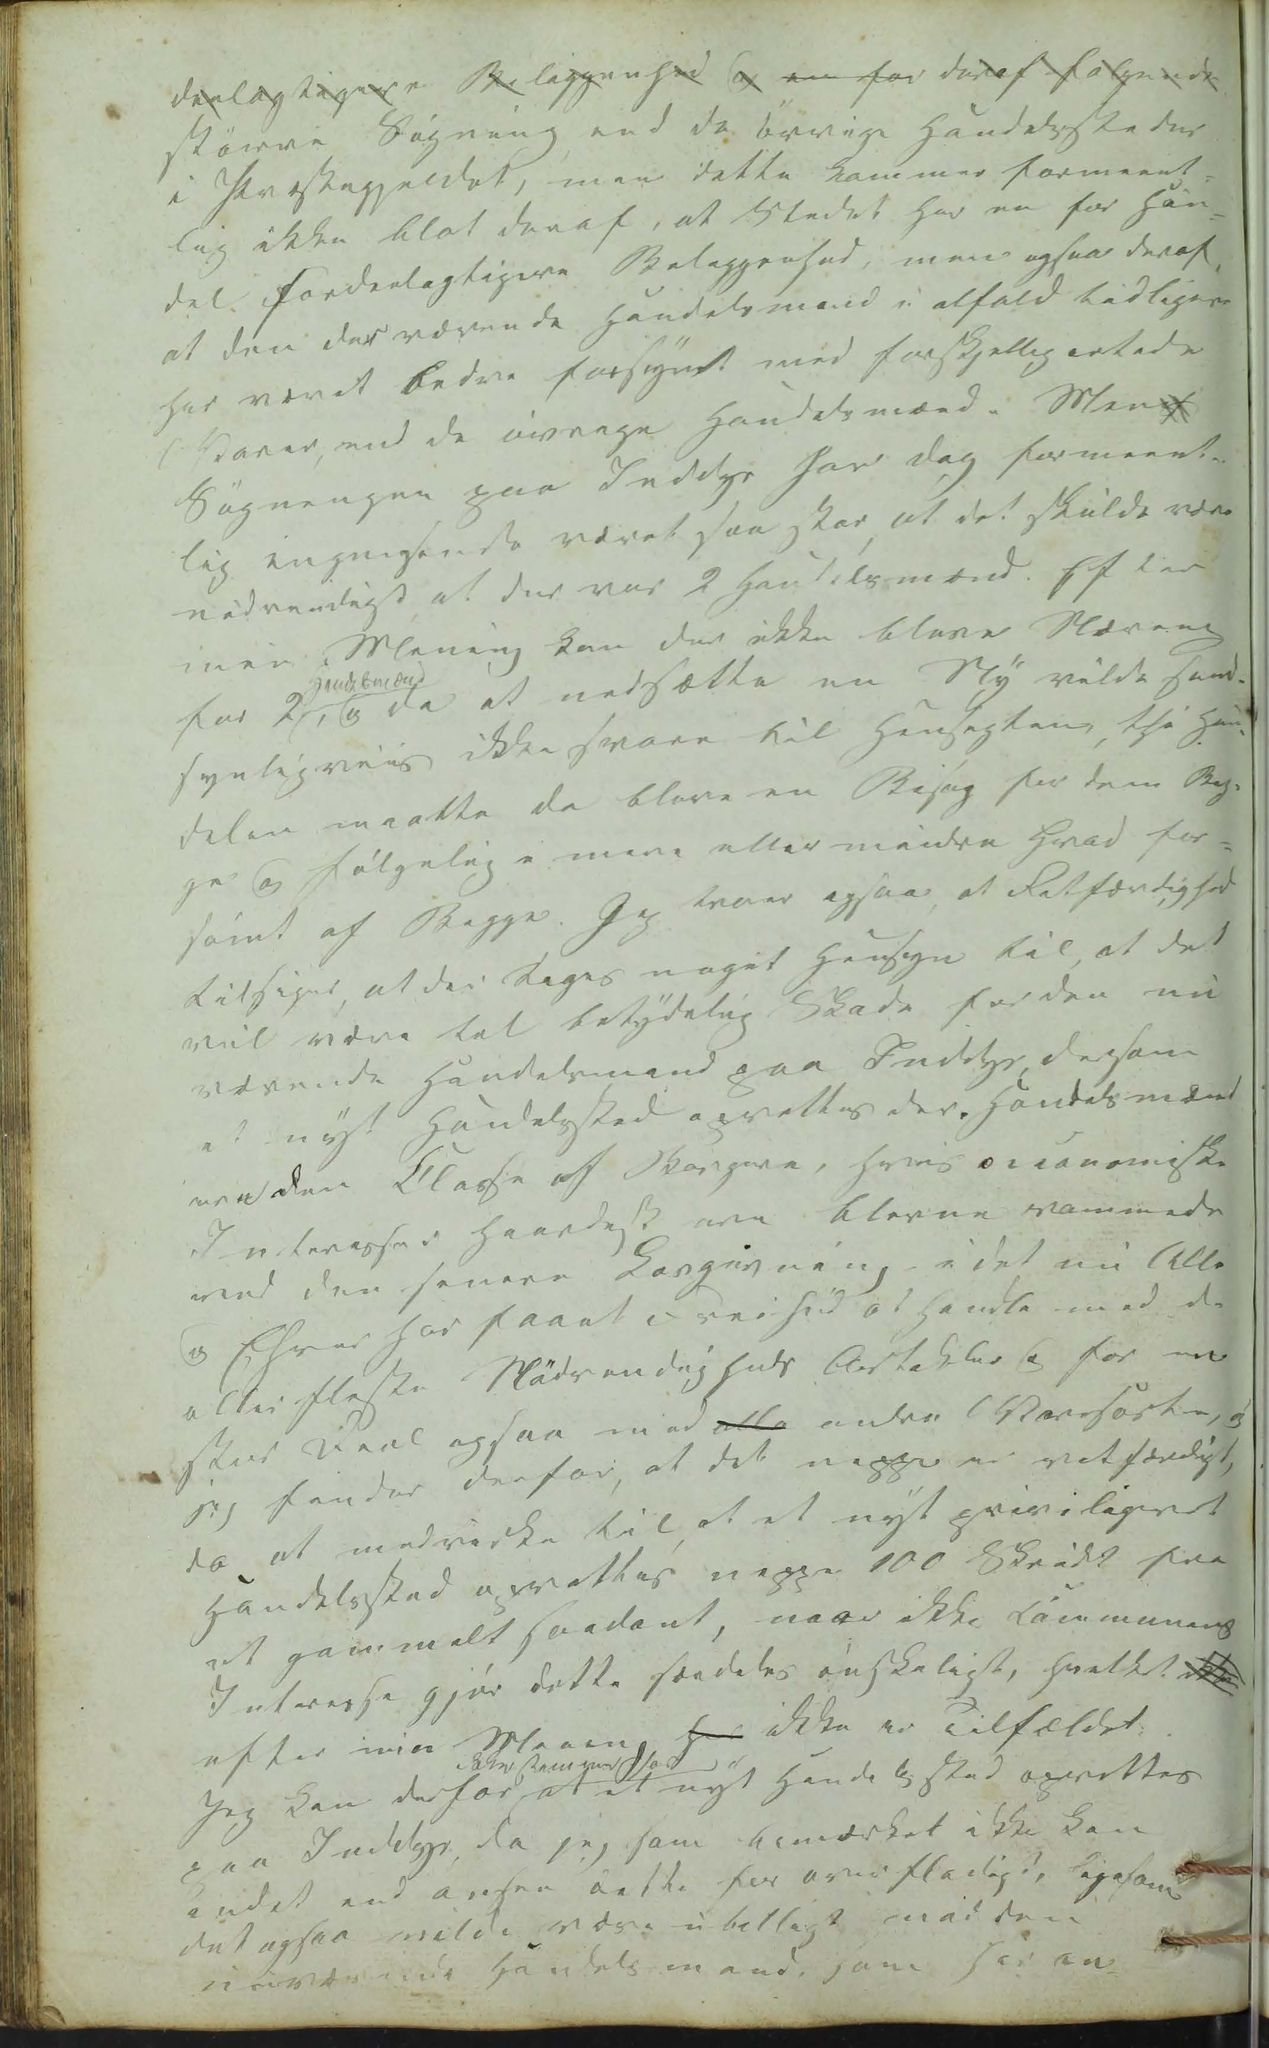 deelagtigere Beliggenhed og en for deraf følgende
större Sögning end de övrige Handelssteder
i Præstegjeldet, men dette kommer formeent-
lig ikke blot deraf, at Stedet har en for Han-
del fordeelagtigere Beliggenhed, men ogsaa deraf,
at den derværende Handelsmand i alfald tidligere
har været bedre forsynet med forskjelligartede
Varer, end de övrige Handelsmænd. Men
Sögningen paa Inddyr har dog formeent-
lig ingensinde været saa stor, at det skulde være
nödvendigt at der var 2 Handelsmænd. Efter
min Mening kan der ikke blive Næring
for 2 Handelsmænd, og da at nedsætte en Ny vilde sand-
synligviis ikke svare til Hensigten, thi Han-
delen maatte da blive en Bisag for dem Beg-
ge og fölgelig mere eller mindre hver for-
sömt af Begge. Jeg troer ogsaa, at Retfærdighed
tilsiger, at der tages noget Hensyn til, at det
vil være til betydelig Skade for den nu
værende Handelsmand paa Inddyr, dersom
et nyt Handelssted oprettes der. Handelsmænd
ere den Classe af Borgere, hvis oeconomiske
Interesser haardest ere blevne rammede
ved den senere Lovgivning, idet nu Alle
og Enhver har faaet Frihed at handle med de
allerfleste Nödvendigheds Artikler og for en
stor Deel ogsaa med alle andre Varesorter, og
jeg finder derfor, at det neppe er retfærdigt,
da at medvirke til, at et nyt priviligeret
Handelssted oprettes neppe 100 Skridt fra
et gammelt saadant, naar ikke Communens
Interesse gjör dette særdeles önskeligt, hvilket ikke
efter min Mening ikke er Tilfældet.
Jeg kan derfor ikke stemme for at et nyt Handelssted oprettes
paa Inddyr, da jeg som bemærket ikke kan
andet end ansee dette for overflödigt, ligesom
det ogsaa vilde være ubilligt mod den
nuværende Handelsmand, som har an-